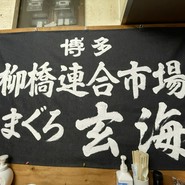 博多
柳橋連合市場
まぐろ 玄海